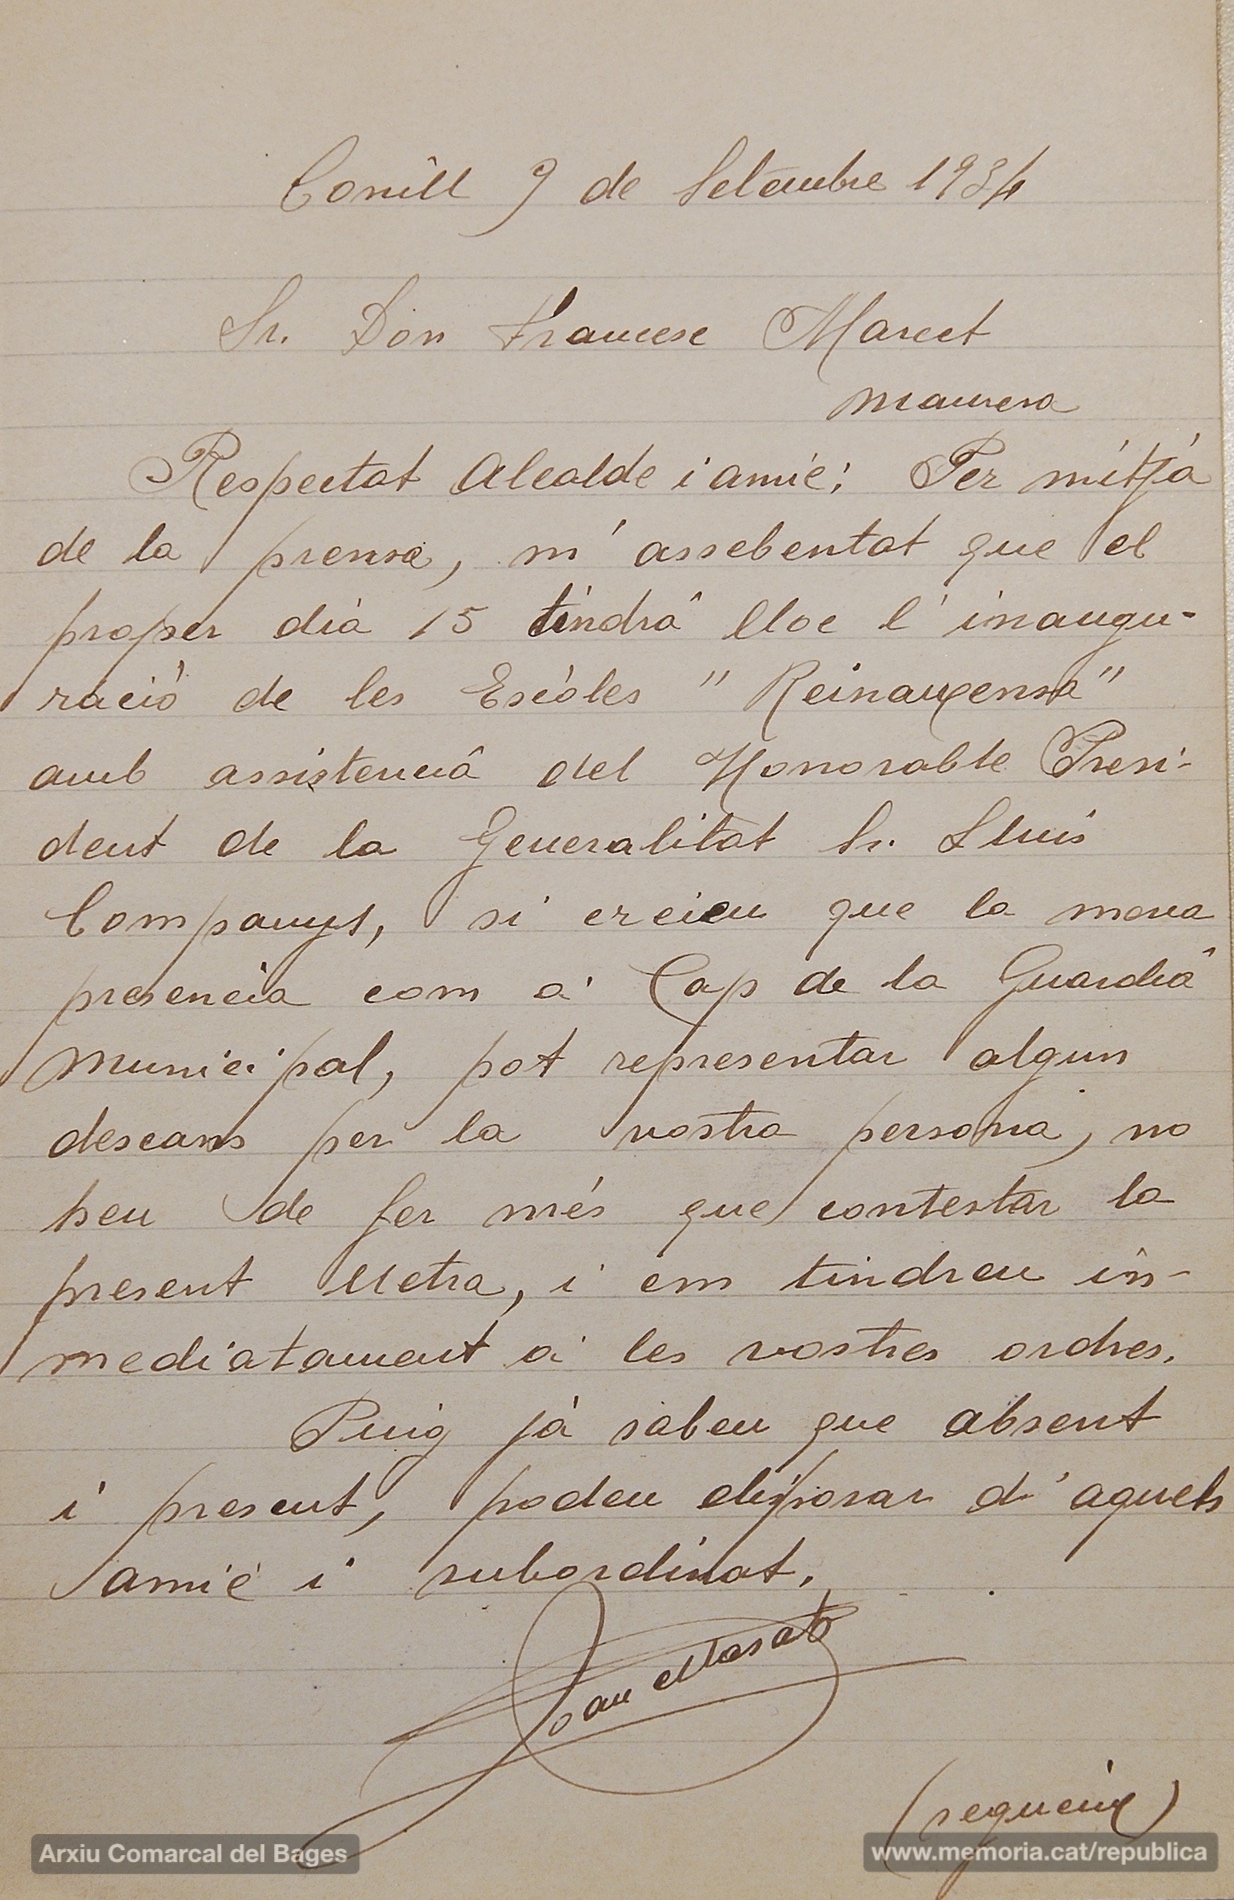 Conill 9 de Setembre 1934
Sr. Don Francesc Marcet
Manresa
Respectat Alcalde i amic; Per mitjà
de la prensa, m'assebentat que el
proper dià 15 tindrâ lloc l'inaugu-
ració de les Escòles "Reinaxensa"
amb assistenciâ del Honorable Presi-
dent de la Generalitat Sr. Lluis
Companys, si creieu que la meva
presencia com a Cap de la Guardiâ
Municipal, pot representar algun
descans per la vostra persona, no
heu de fer més que contestar la
present lletra, i em tindreu in-
mediatament a les vostres ordres.
Puig jà sabeu que absent
i present, podeu disposar d'aquets
amic i subordinat.
Joan Masats
(segueix)
Arxiu Comarcal del Bages
www.memoria.cat/republica